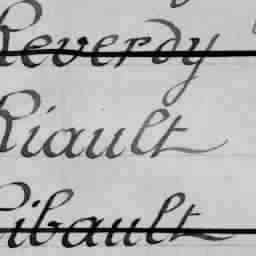 Reverdy
Riault
Ribault